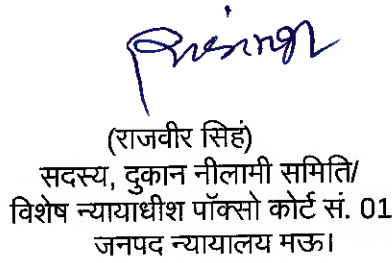 (राजवीर सिहं)
सदस्य, दुकान नीलामी समिति/
विशेष न्यायाधीश पॉक्सो कोर्ट सं. 01
जनपद न्यायालय मऊ।